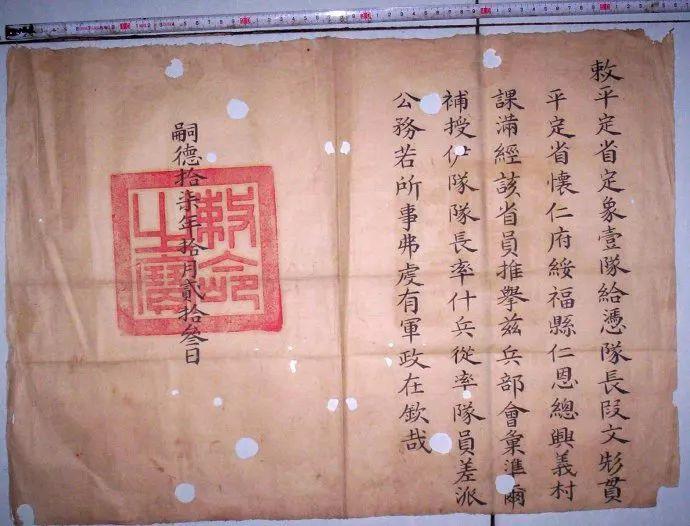 敕平定省定象壹隊給憑隊長段文彪貫
平定省懷仁府綏福縣仁恩總興義村
課滿經該省員推舉茲兵部會彙準爾
補授伊隊隊長率什兵從率隊員差派
公務若所事弗虔有軍政在欽哉
嗣德拾柒年拾月貳拾叄日
敕命之寶